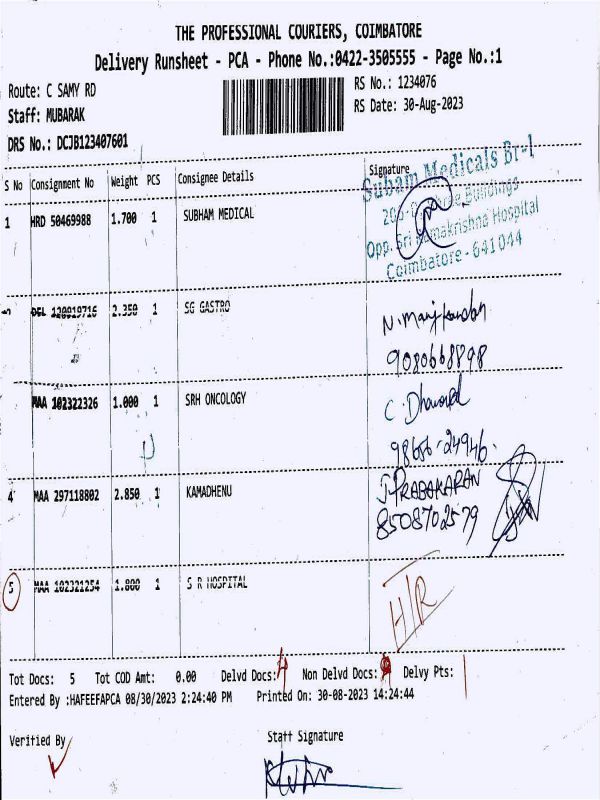 THE PROFESSIONAL COURIERS, COIMBATORE
Delivery Runsheet - PCA - Phone No.:0422-3505555 - Page No.:1
Route: C SAMY RD RS No.: 1234076
Staff: MUBARAK RS Date: 30-Aug-2023
DRS No.: DCJB123407601
S No Consignment No Weight PCS Consignee Details Signature
Subam Medicals Br-1
1 HRD 50469988 1.700 1 SUBHAM MEDICAL
Buildings
Opp. Sri Ramakrishna Hospital
Coimbatore - 641044
DEL 120919716 2.350 1 SG GASTRO
9080668898
MAA 102322326 1.000 1 SRH ONCOLOGY
C. 
98656-24946.
4 MAA 297118802 2.850 1 KAMADHENU J. PRABAKARAN
8508702579
5 MAA 102321254 1.800 1 S R HOSPITAL
H/R
Tot Docs: 5 Tot COD Amt: 0.00 Delvd Docs: 4 Non Delvd Docs: Delvy Pts:
Entered By :HAFEEFAPCA 08/30/2023 2:24:40 PM Printed On: 30-08-2023 14:24:44
Verified By Staff Signature